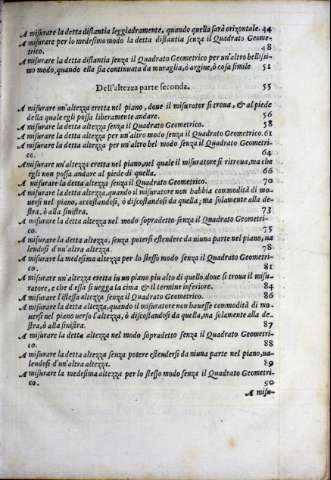 A misurare la detta distantia leggiadramente, quando quella sarà orizontale. 44
A misurare per lo medesimo modo la detta distantia senza il Quadrato Geome-
trico. 48
A misurare la detta distantia senza il Quadrato Geometrico per un'altro bellissi-
mo modo, quando ella sia continuata da muraglia, ò argine, ò cosa simile 51
Dell'altezza parte seconda. 55
A misurare un'altezza eretta nel piano, doue il misurator si troua, & al piede
della quale egli possa liberamente andare. 56
A misurare la detta altezza senza il Quadrato Geometrico. 58
A misurare la detta altezza per un'altro modo senza il Quadrato Geometrico. 61
A misurare la detta altezza per un'altro bel modo senza il Quadrato Geometri-
co. 64
A misurare un'altezza eretta nel piano, nel quale il misuratore si ritroua, ma che
egli non possa andare al piede di quella. 66
A misurare la detta altezza senza il Quadrato Geometrico. 70
A misurare la detta altezza, quando il misuratore non habbia commodità di mo-
uersi nel piano, accostandosi, ò discostandosi da quella, ma solamente alla de-
stra, ò alla sinistra. 73
A misurare la detta altezza nel modo sopradetto senza il Quadrato Geometri-
co. 75
A misurare la detta altezza, senza potersi estendere da niuna parte nel piano, ua-
lendosi d'un'altra altezza.
A misurare la medesima altezza per lo stesso modo senza il Quadrato Geometri-
co. 81
A misurare un'altezza eretta in un piano più alto di quello, doue si troua il misura-
tore, e che d'essa si uegga la cima & il termine inferiore. 84
A misurare l'istessa altezza senza il Quadrato Geometrico. 86
A misurare la detta altezza, quando il misuratore non hauesse commodità di mo-
uersi nel piano uerso l'altezza, ò discostandosi da quella, ma solamente alla de-
stra, ò alla sinistra. 87
A misurare la detta altezza nel modo sopradetto senza il Quadrato Geometri-
co. 88
A misurare la detta altezza senza potere estendersi da niuna parte nel piano, ua-
lendosi d'un'altra altezza. 89
A misurare la medesima altezza per lo stesso modo senza il Quadrato Geometri-
co. 90
A misu-